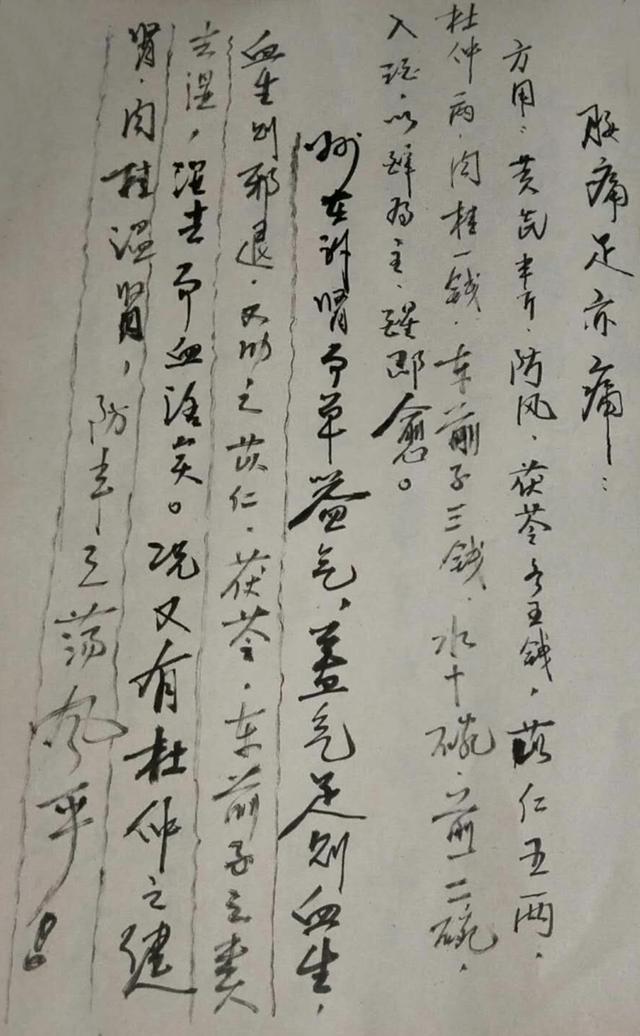 腰痛足亦痛：
方用：黄芪半斤．防风．茯苓各五钱，苡仁五两．
杜仲一两．肉桂一钱．车前子三钱．水十碗．煎二碗．
入酒．以醉为主．醒即愈。
妙在补肾而单益气，盖气足则血生，
血生则邪退．又助之苡仁．茯苓．车前子之类
去湿，湿去而血活矣。况又有杜仲之健
肾．肉桂温肾，防丰之荡风乎！